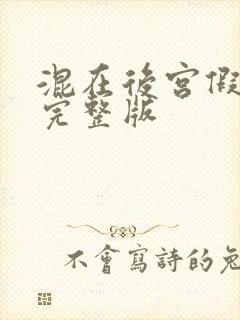 混在後宮假
完整版
不會寫詩的兔